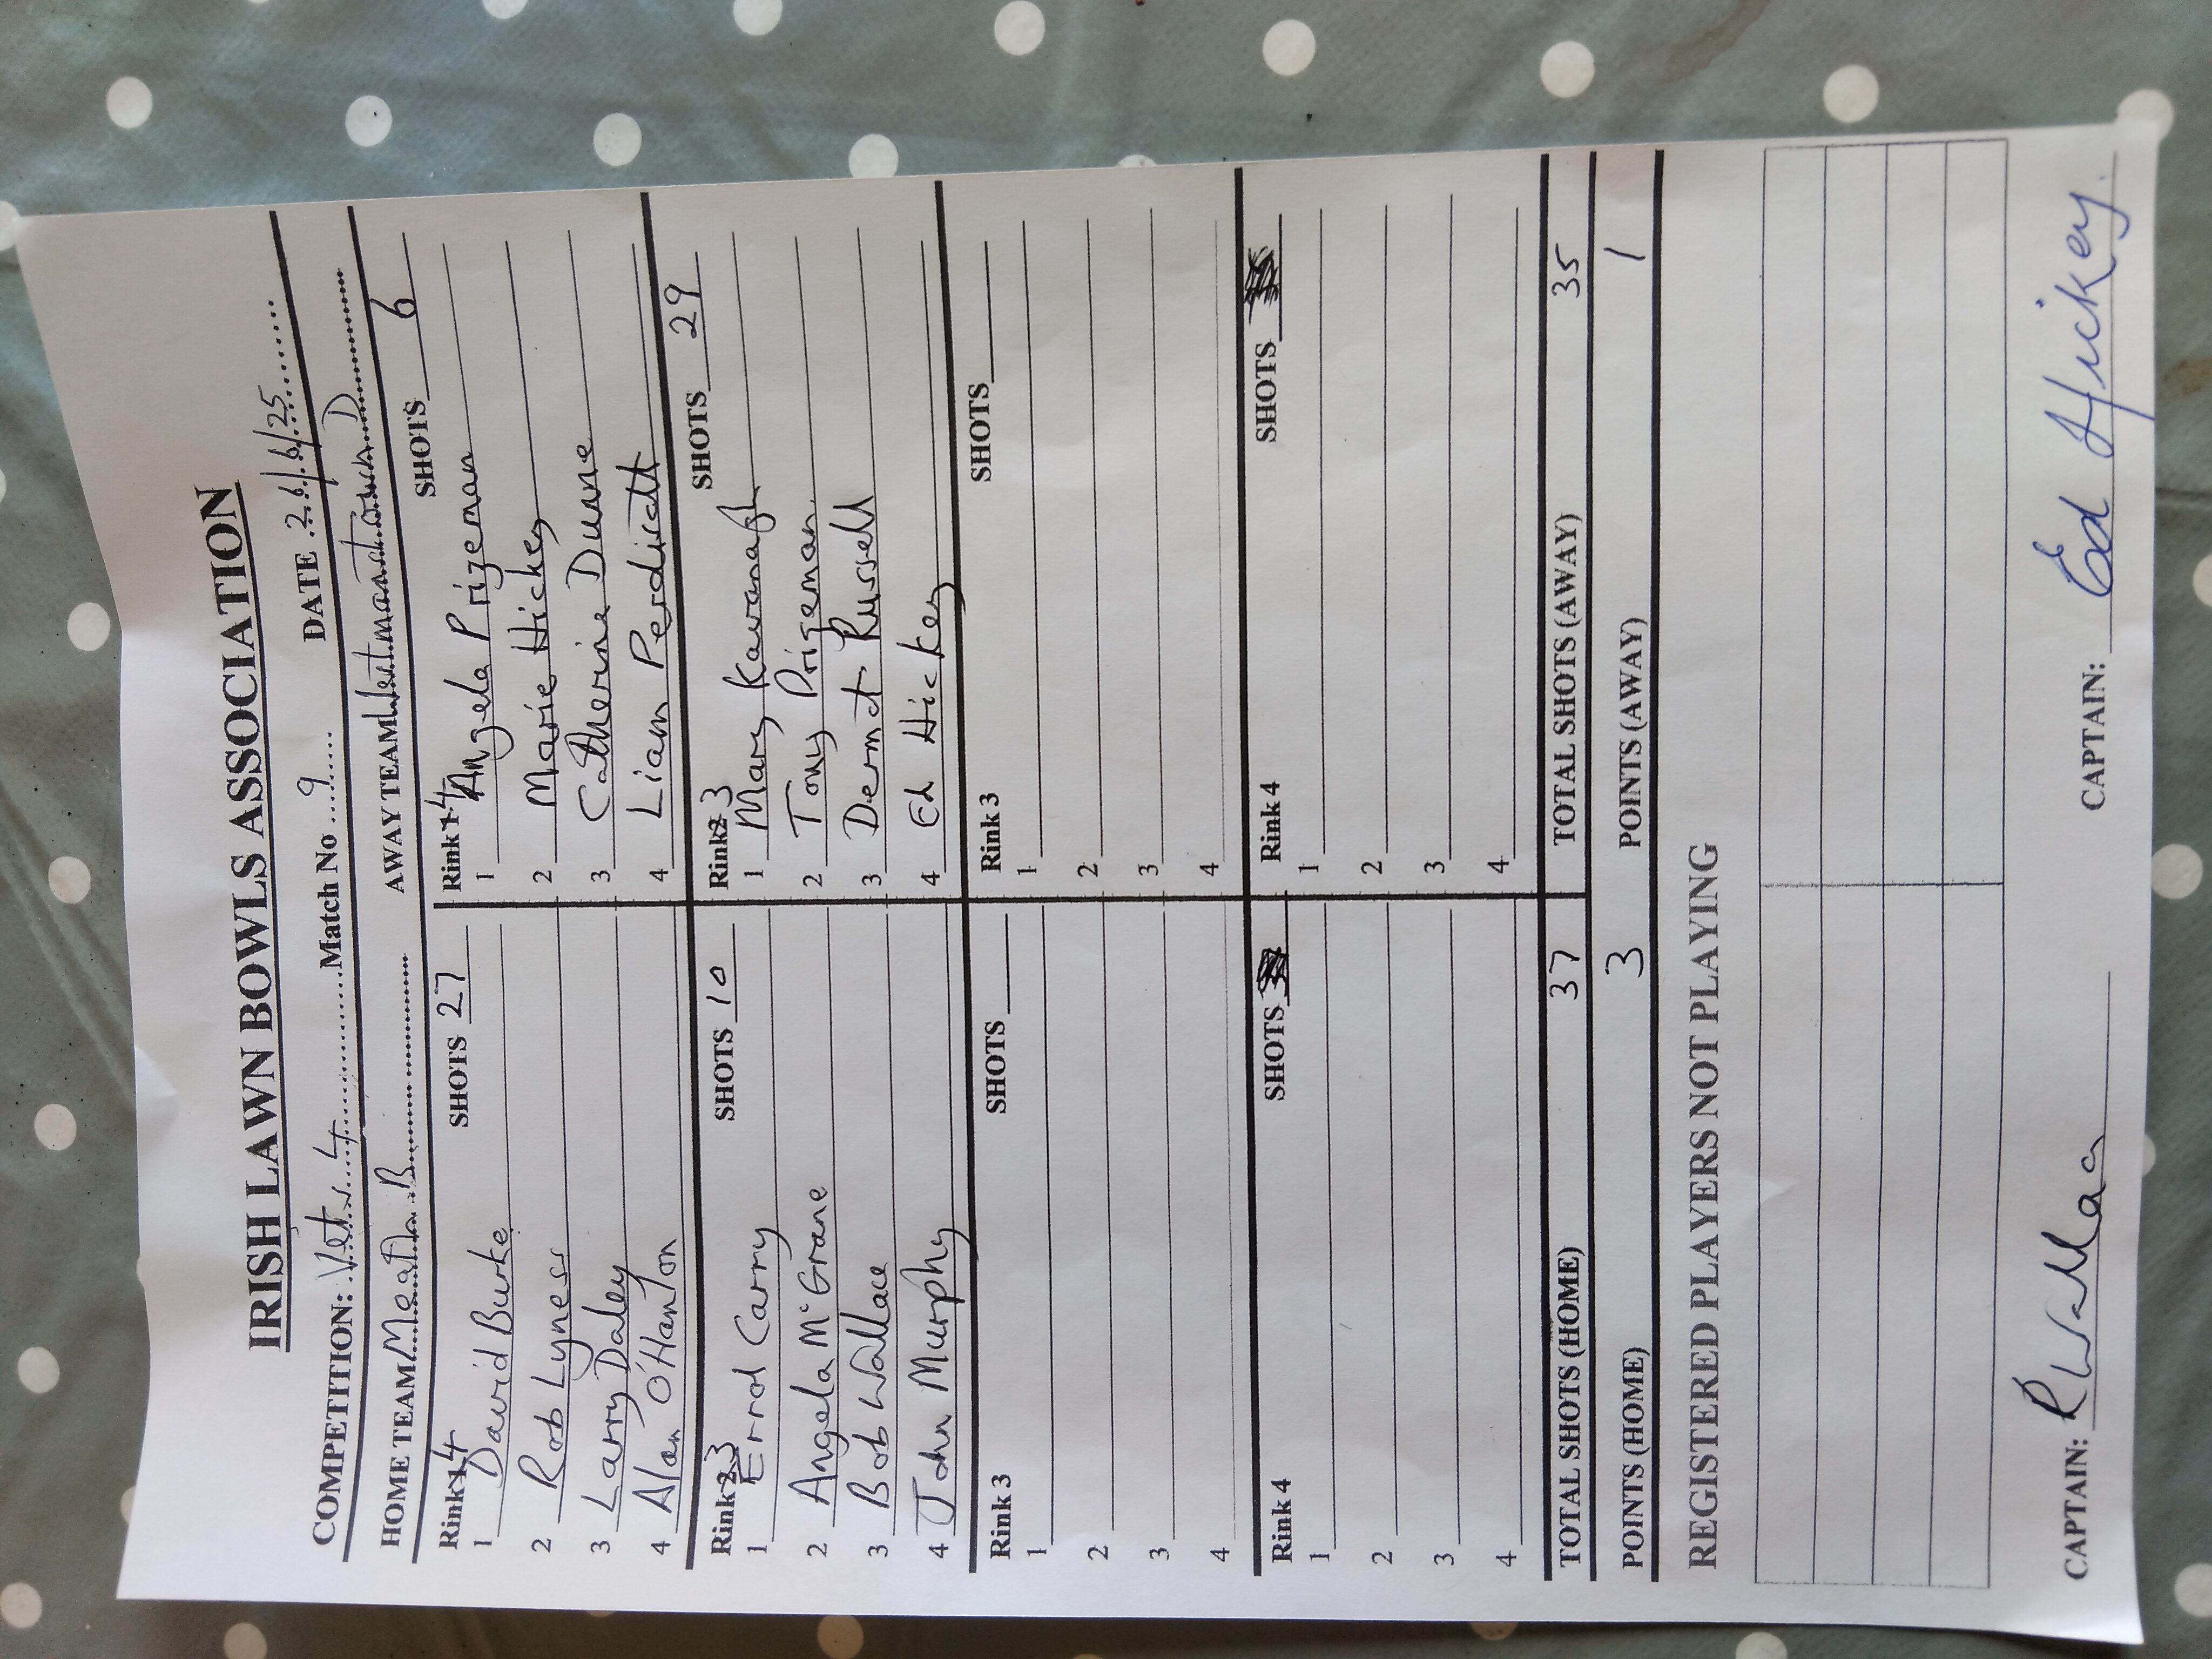 IRISH LAWN BOWLS ASSOCIATION
COMPETITION: Vets 4 Match No 9 DATE 26/6/25
HOME TEAM Meath B AWAY TEAM Westmanstown D
Rink 4 SHOTS 27
1 David Burke
2 Rob Lyness
3 Larry Daley
4 Alan O'Hanlon
Rink 4 SHOTS 6
1 Angela Prizeman
2 Marie Hickey
3 Catherine Dunne
4 Liam
Rink 3 SHOTS 10
1 Errol Carry
2 Angela McGrane
3 Bob Wallace
4 John Murphy
Rink 3 SHOTS 29
1 Mary Kavanagh
2 Tony Prizeman
3 Dermot Russell
4 Ed Hickey
Rink 3 SHOTS
1
2
3
4
Rink 3 SHOTS
1
2
3
4
Rink 4 SHOTS
1
2
3
4
Rink 4 SHOTS
1
2
3
4
TOTAL SHOTS (HOME) 37 TOTAL SHOTS (AWAY) 35
POINTS (HOME) 3 POINTS (AWAY) 1
REGISTERED PLAYERS NOT PLAYING
CAPTAIN: R Wallace CAPTAIN: Ed Hickey